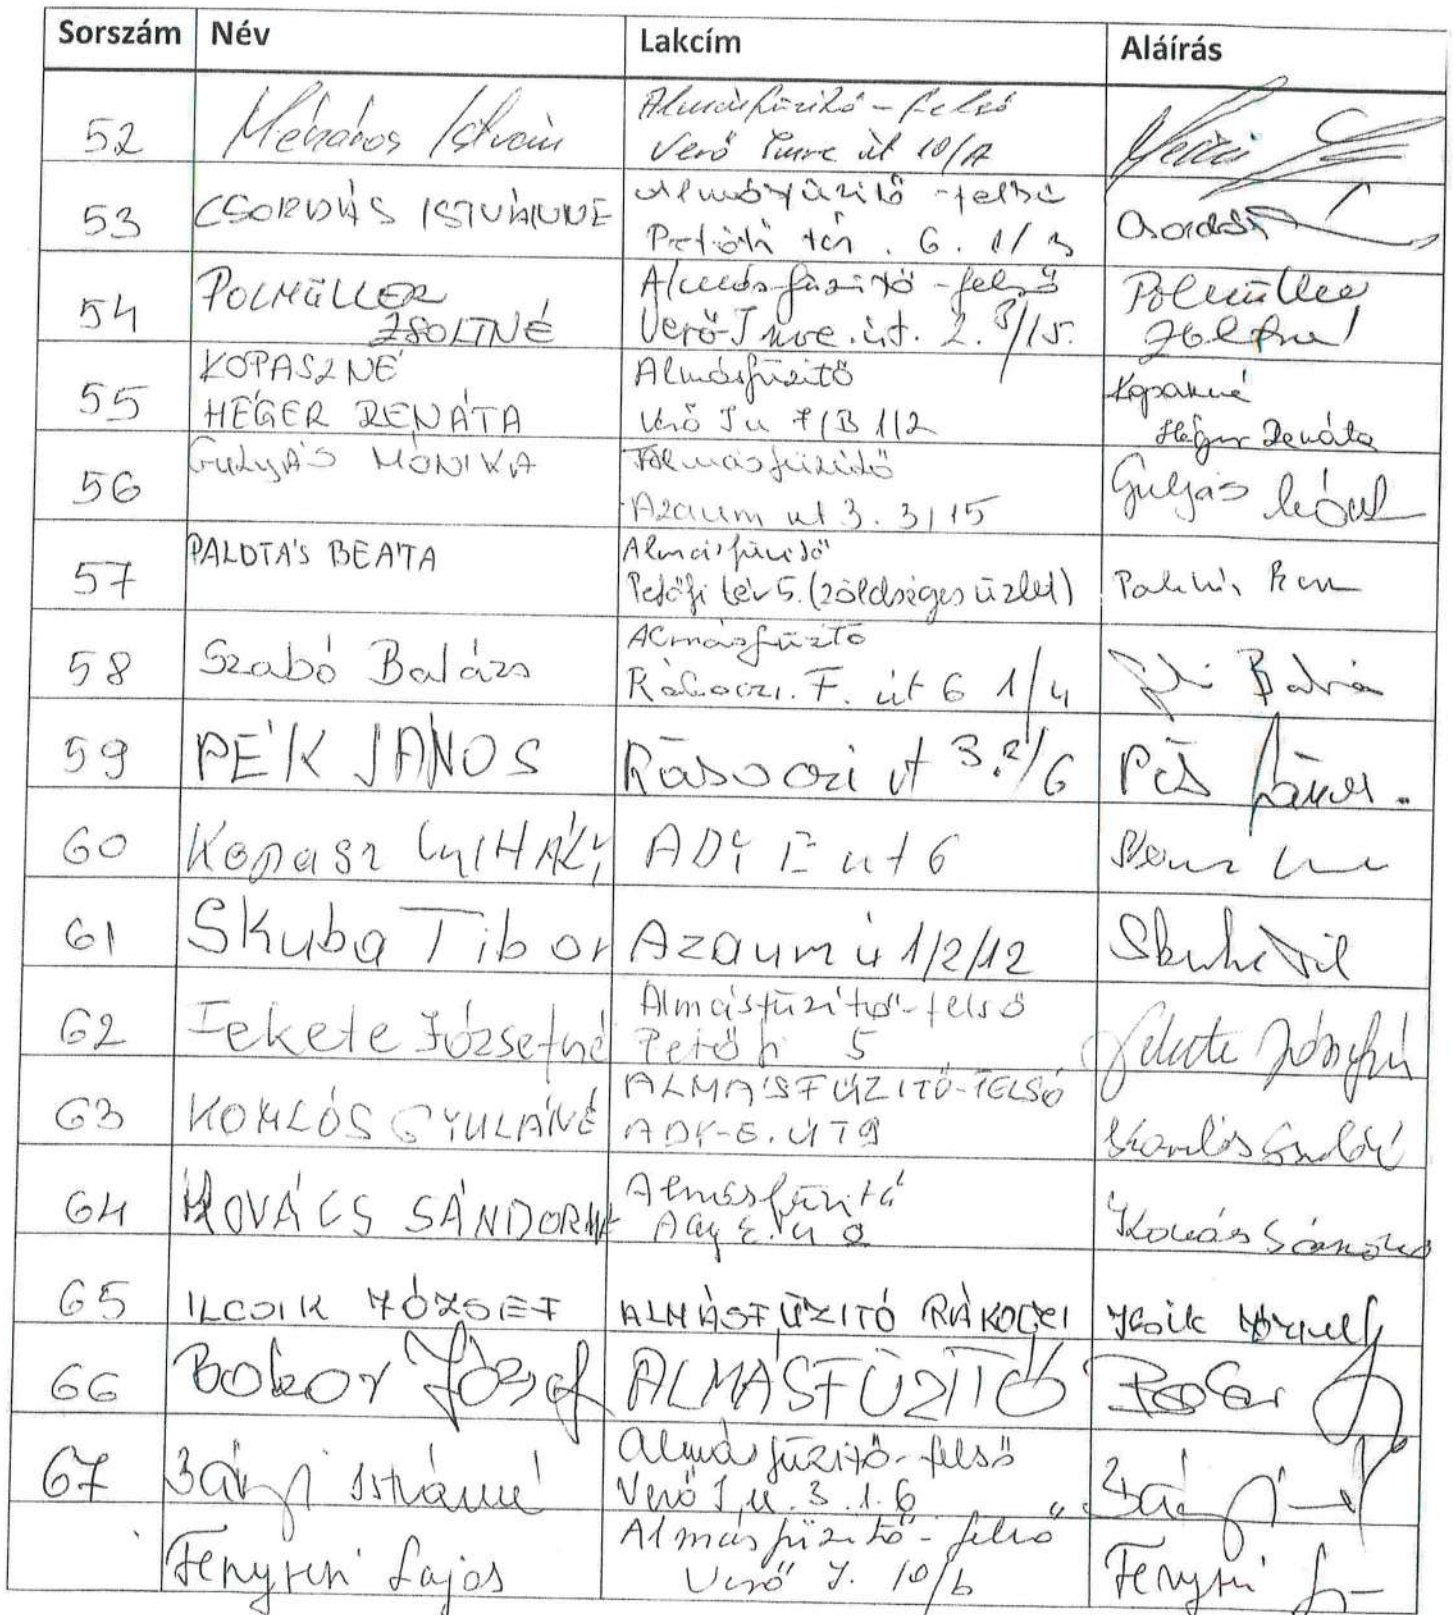 Sorszám Név Lakcím Aláírás
52 Mészáros István Almásfüzitő - felső
Verő Imre út 10/A
53 CSORDÁS ISTVÁNNE Almásfüzitő - felső
Petőfi tér. 6. 1/3 Csordás
54 POLMÜLLER Almásfüzitő - felső Polmüller
ZSOLTNÉ Verő Imre. út. 2. 3/15. Zsoltné
55 KOPASZNÉ Almásfüzitő Kopaszné
HÉGER RENÁTA Verő I u 7/B 1/2 Héger Renáta
56 GULYÁS MÓNIKA Almásfüzitő Gulyás
Azaum ut 3. 3/15
57 PALOTÁS BEÁTA Almásfüzitő
Petőfi tér 5. (zöldséges üzlet)
58 Szabó Balázs Almásfüzitő
Rákoczi. F. út 6 1/4
59 PÉK JÁNOS Rákoczi ut 3. 2/6 Pék János.
60 Kopasz MIHÁLY ADY E ut 6
61 Skuba Tibor Azaum ú 1/2/12 Skuba
62 Fekete Józsefné Almásfüzitő-felső Fekete Józsefné
Petőfi 5
63 KOMLÓS GYULÁNÉ ALMÁSFÜZITŐ-FELSŐ
ADY-E. ÚT 9 Komlós Gyuláné
64 KOVÁCS SÁNDORNÉ Almásfüzitő
Ady E. u 2 Kovács Sándorné
65 ILCSIK JÓZSEF ALMÁSFÜZITŐ RÁKOCZI Ilcsik József
66 Bokor József ALMÁSFÜZITŐ Bokor
67 Bányi Istvánné Almásfüzitő-felső
Verő I. u. 3. 1. 6
Fenyvesi Lajos Almásfüzitő - felső Fenyvesi
Verő I. 10/b